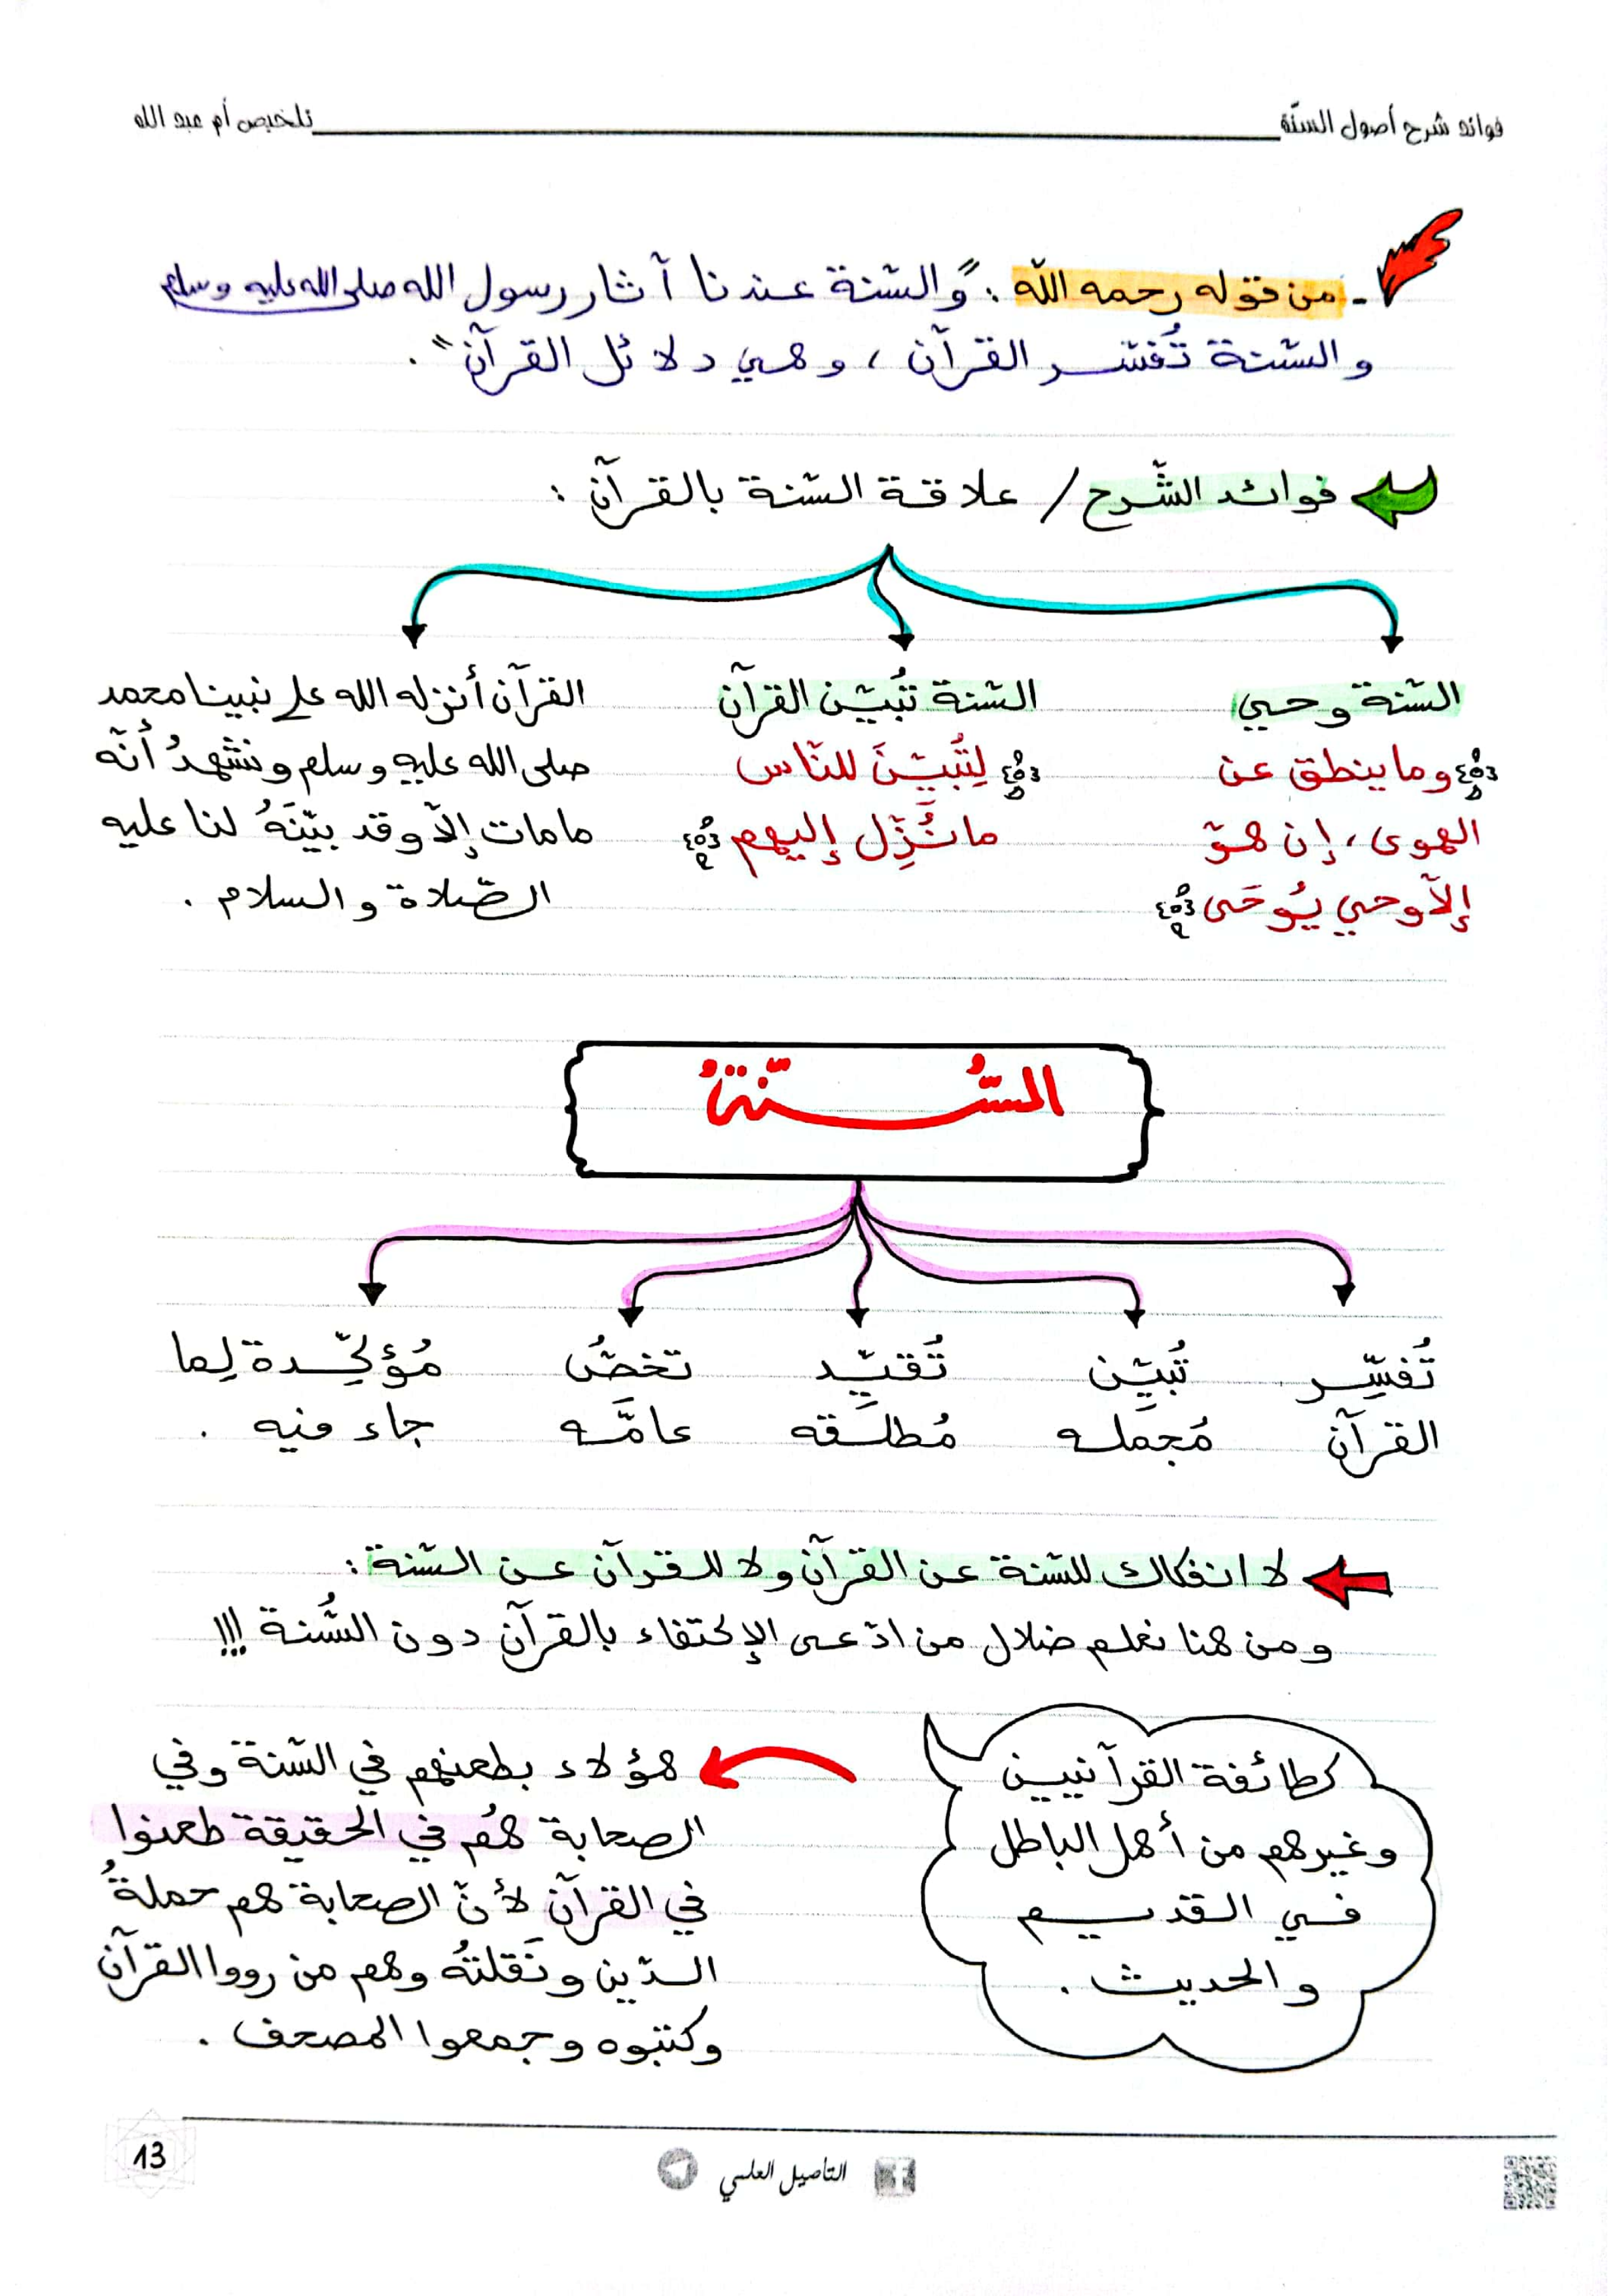 فوائد شرح أصول السنّة
تلخيص أم عبد الله
- من قوله رحمه الله : "والسّنة عندنا آثار رسول الله صلى الله عليه وسلم
والسّنة تُفسّر القرآن ، وهي دلائل القرآن" .
فوائد الشّرح / علاقة السّنة بالقرآن :
السّنة وحي
﴿وما ينطق عن
الهوى ، إن هوّ
إلاّ وحي يُوحَى﴾
السّنة تُبيّن القرآن
﴿لِتُبيّنَ للنّاس
ما نُزِّل إليهم﴾
القرآن أنزله الله على نبينا محمد
صلى الله عليه وسلم ونشهدُ أنّه
ما مات إلاّ وقد بيّنَهُ لنا عليه
الصّلاة والسلام .
السُّنّةُ
تُفسِّر
القرآن
تُبيّن
مُجمَله
تُقيّد
مُطلَقه
تخصُّ
عامَّه
مُؤكِّدة لِما
جاء فيه .
لا انفكاك للسّنة عن القرآن ولا للقرآن عن السّنة :
ومن هنا نعلم ضلال من ادّعى الإكتفاء بالقرآن دون السُّنة !!!
كطائفة القرآنيين
وغيرهم من أهل الباطل
في القديم
والحديث .
هؤلاء بطعنهم في السّنة وفي
الصحابة هُم في الحقيقة طعنوا
في القرآن لأنّ الصحابة هم حملةُ
الدّين ونَقلتُه وهم من رووا القرآن
وكتبوه وجمعوا المصحف .
التأصيل العلمي
13